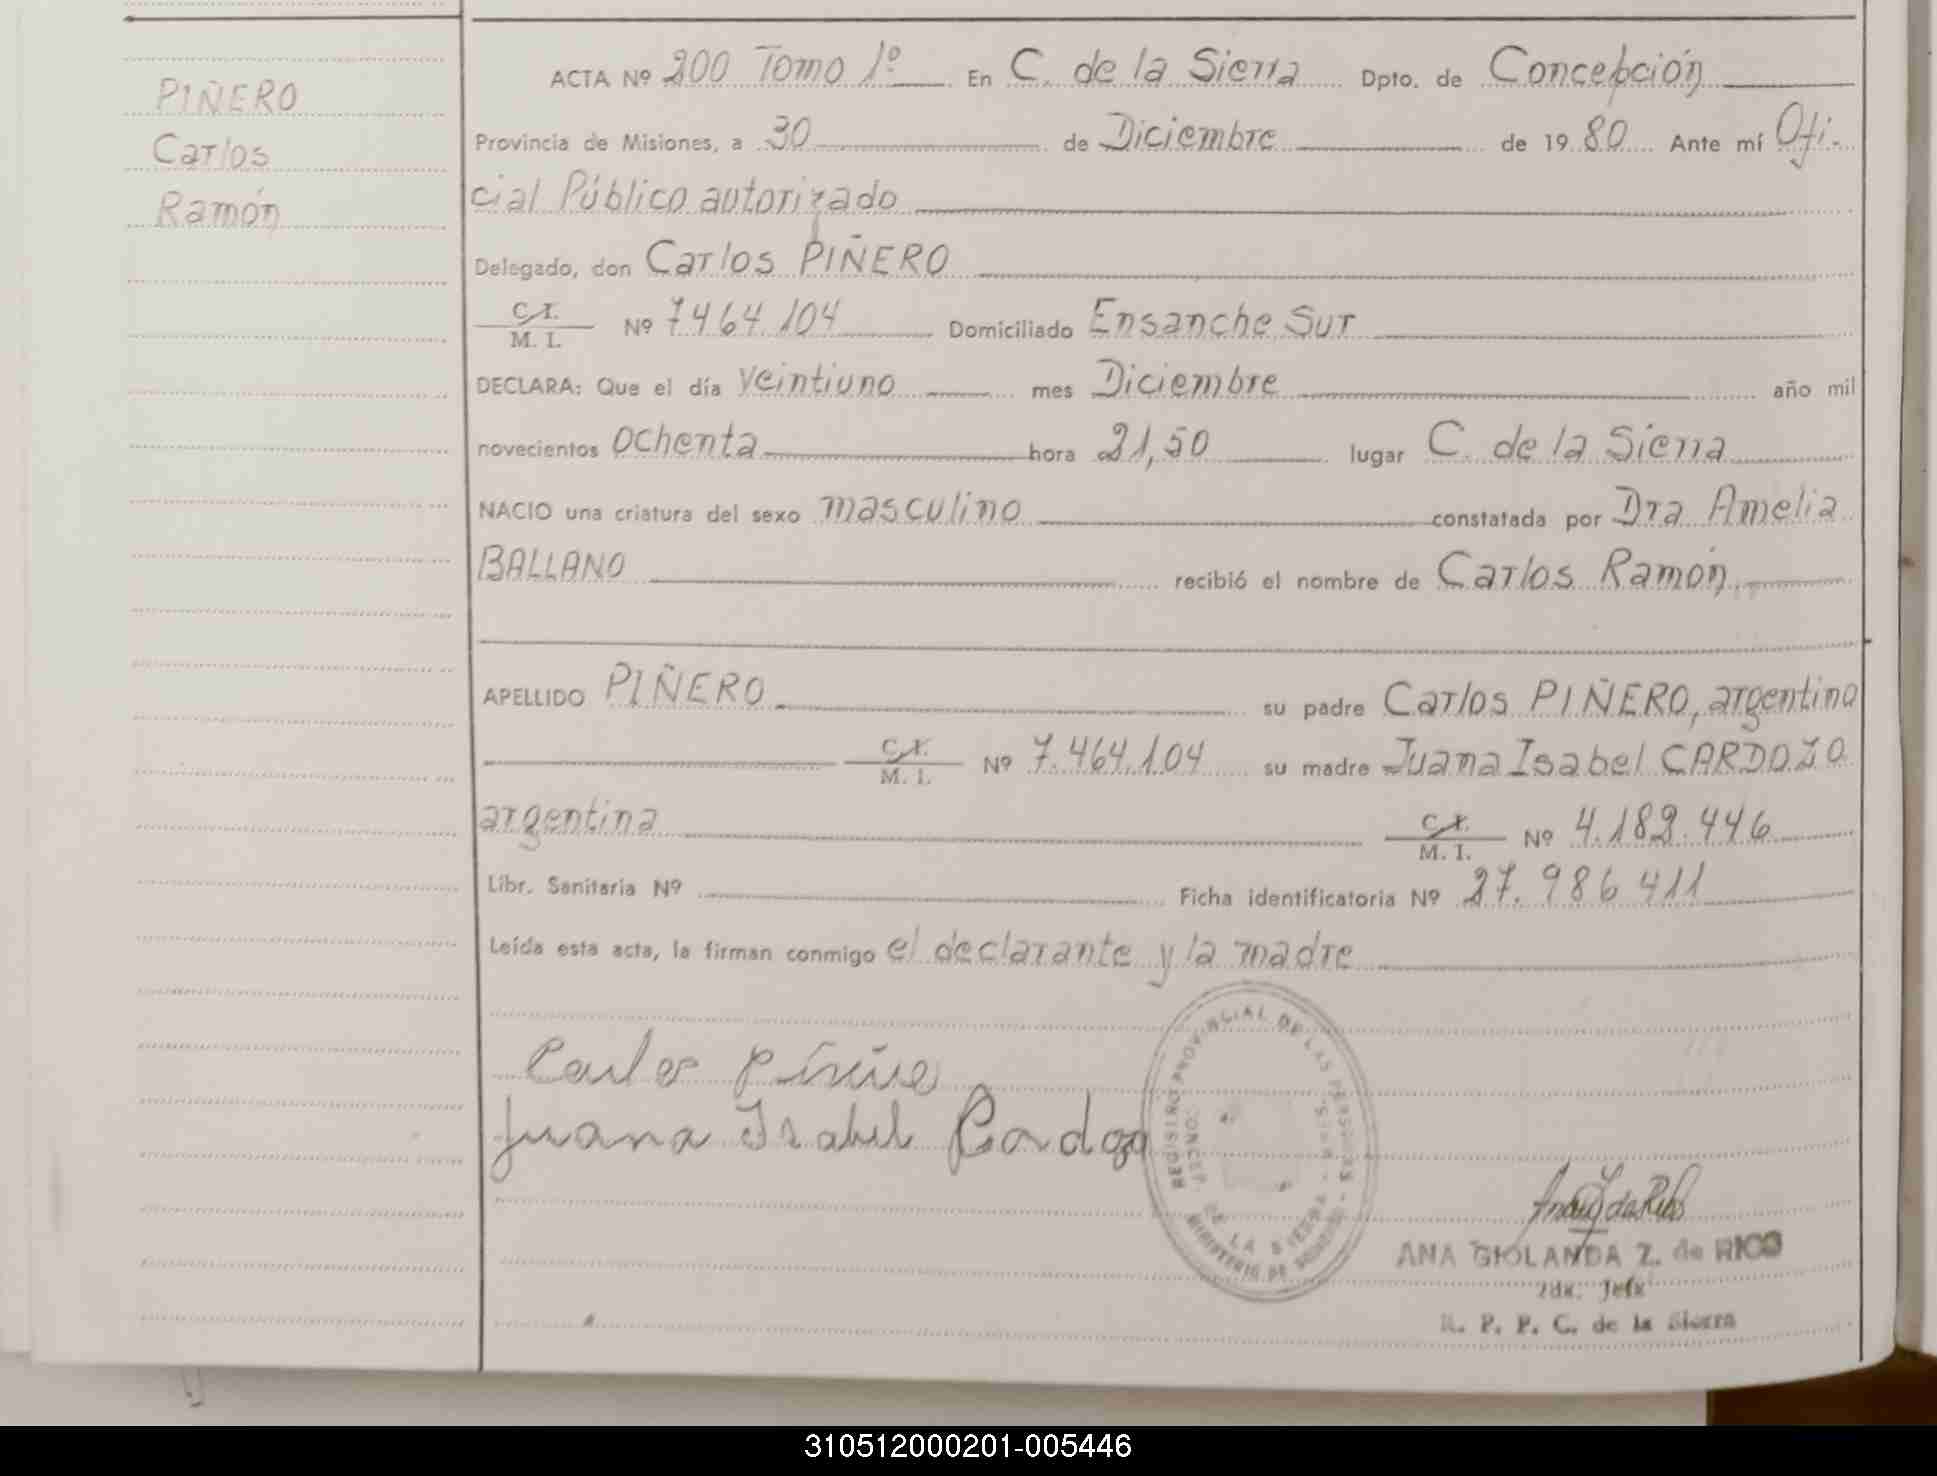 PIÑERO
Carlos
Ramón
ACTA Nº 200 Tomo 1º En C. de la Sierra Dpto. de Concepción
Provincia de Misiones, a 30 de Diciembre de 1980 Ante mí Ofi-
cial Público autorizado
Delegado, don Carlos PIÑERO
C.I. M. I. Nº 7464.104 Domiciliado Ensanche Sur
DECLARA: Que el día veintiuno mes Diciembre año mil
novecientos ochenta hora 21,50 lugar C. de la Sierra
NACIO una criatura del sexo masculino constatada por Dra Amelia
BALLANO recibió el nombre de Carlos Ramón
APELLIDO PIÑERO su padre Carlos PIÑERO, argentino
C.I. M. I. Nº 7.464.104 su madre Juana Isabel CARDOZO
argentina C.I. M. I. Nº 4.182.446
Libr. Sanitaria Nº Ficha identificatoria Nº 27.986411
Leída esta acta, la firman conmigo el declarante y la madre
Carlos Piñero
Juana Isabel Cardozo
REGISTRO PROVINCIAL DE LAS PERSONAS
CONCEP. DE LA SIERRA - MIS.
MINISTERIO DE GOBIERNO
ANA GIOLANDA Z. de RICO
2da. Jefe
R. P. P. C. de la Sierra
310512000201-005446